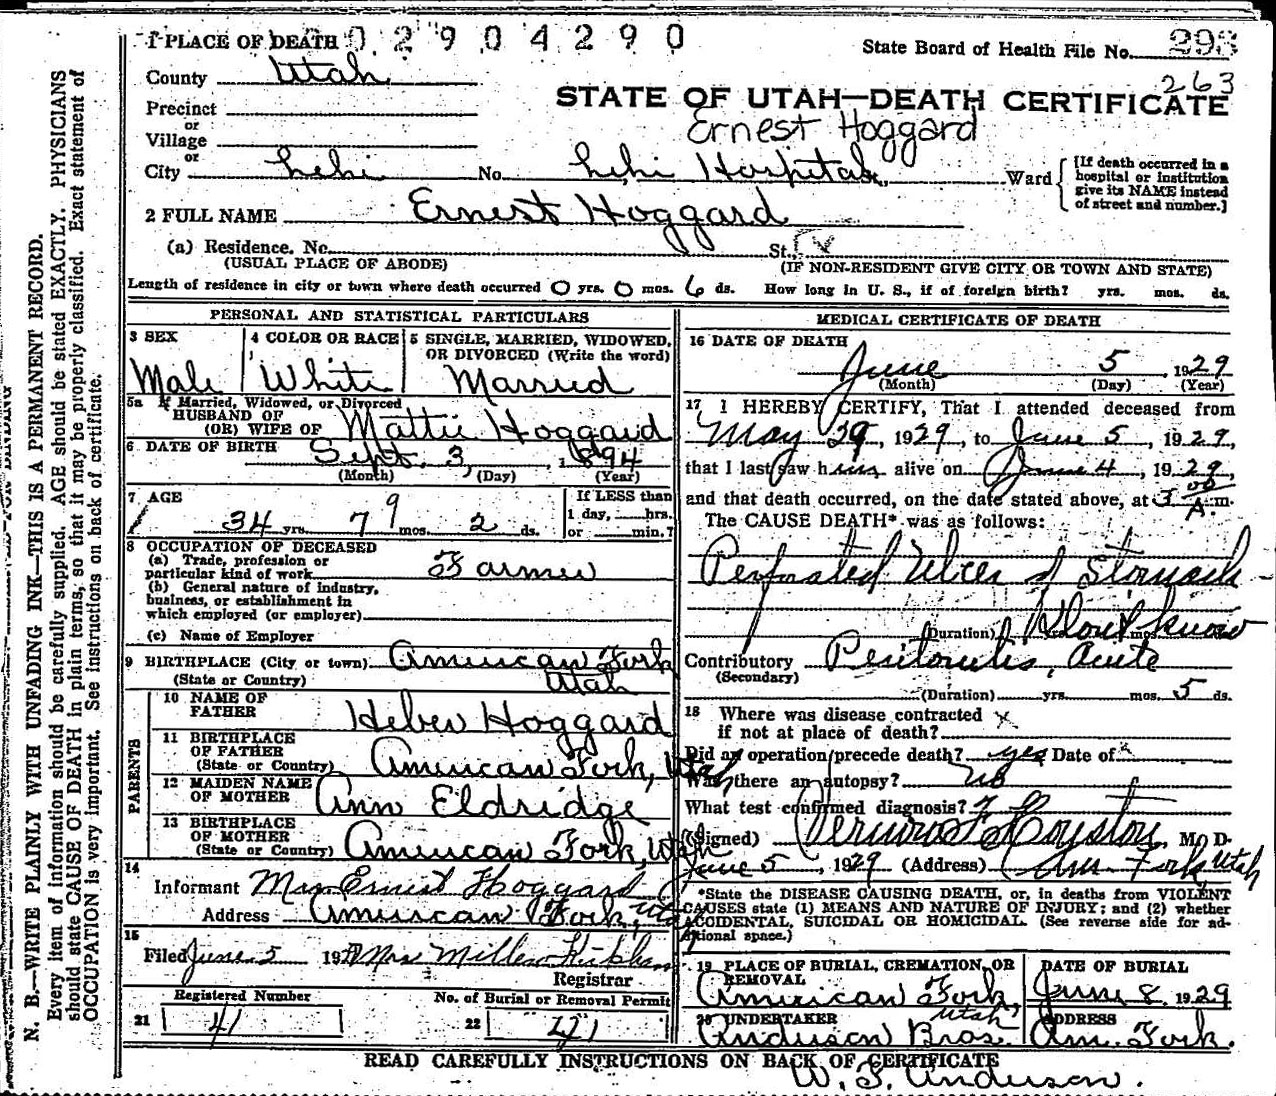 1 PLACE OF DEATH 0 2 9 0 4 2 9 0
State Board of Health File No. 293
263
County Utah
STATE OF UTAH—DEATH CERTIFICATE
Precinct
Ernest Hoggard
or
Village
or
City Lehi No. Lehi Hospital St., Ward
[If death occurred in a
hospital or institution
give its NAME instead
of street and number.]
2 FULL NAME Ernest Hoggard
(a) Residence. No. St.,
(USUAL PLACE OF ABODE) (IF NON-RESIDENT GIVE CITY OR TOWN AND STATE)
Length of residence in city or town where death occurred 0 yrs. 0 mos. 6 ds. How long in U. S., if of foreign birth? yrs. mos. ds.
PERSONAL AND STATISTICAL PARTICULARS
3 SEX 4 COLOR OR RACE 5 SINGLE, MARRIED, WIDOWED,
OR DIVORCED (Write the word)
Male White Married
5a If Married, Widowed, or Divorced
HUSBAND OF
(OR) WIFE OF Mattie Hoggard
6 DATE OF BIRTH Sept. 3, 1894
(Month) (Day) (Year)
7 AGE If LESS than
1 day, hrs.
34 yrs. 7 9 mos. 2 ds. or min.?
8 OCCUPATION OF DECEASED
(a) Trade, profession or
particular kind of work Farmer
(b) General nature of industry,
business, or establishment in
which employed (or employer)
(c) Name of Employer
9 BIRTHPLACE (City or town) American Fork
(State or Country) Utah
PARENTS
10 NAME OF
FATHER Heber Hoggard
11 BIRTHPLACE
OF FATHER
(State or Country) American Fork, Utah
12 MAIDEN NAME
OF MOTHER Ann Eldridge
13 BIRTHPLACE
OF MOTHER
(State or Country) American Fork, Utah
14
Informant Mrs Ernest Hoggard
Address American Fork, Utah
15
Filed June 5 1929 Mrs
Registrar
Registered Number No. of Burial or Removal Permit
21 41 22
MEDICAL CERTIFICATE OF DEATH
16 DATE OF DEATH
June 5, 1929
(Month) (Day) (Year)
17 I HEREBY CERTIFY, That I attended deceased from
May 29, 1929, to June 5, 1929,
that I last saw him alive on June 4, 1929,
and that death occurred, on the date stated above, at 3 00 A. m.
The CAUSE DEATH* was as follows:
Perforated Ulcer of Stomach
(Duration) Don't know mos.
Contributory Peritonitis, Acute
(Secondary)
(Duration) yrs. mos. 5 ds.
18 Where was disease contracted
if not at place of death?
Did an operation precede death? yes Date of
Was there an autopsy? no
What test confirmed diagnosis?
(Signed) Vernon F. Houston, M. D.
June 5, 1929 (Address) Am. Fork Utah
*State the DISEASE CAUSING DEATH, or, in deaths from VIOLENT
CAUSES state (1) MEANS AND NATURE OF INJURY; and (2) whether
ACCIDENTAL, SUICIDAL OR HOMICIDAL. (See reverse side for ad-
ditional space.)
19 PLACE OF BURIAL, CREMATION, OR
REMOVAL
American Fork, Utah
DATE OF BURIAL
June 8, 1929
20 UNDERTAKER
Anderson Bros.
ADDRESS
Am. Fork.
READ CAREFULLY INSTRUCTIONS ON BACK OF CERTIFICATE
W. F. Anderson.
N. B.—WRITE PLAINLY WITH UNFADING INK—THIS IS A PERMANENT RECORD.
Every item of information should be carefully supplied. AGE should be stated EXACTLY. PHYSICIANS
should state CAUSE OF DEATH in plain terms, so that it may be properly classified. Exact statement of
OCCUPATION is very important. See instructions on back of certificate.